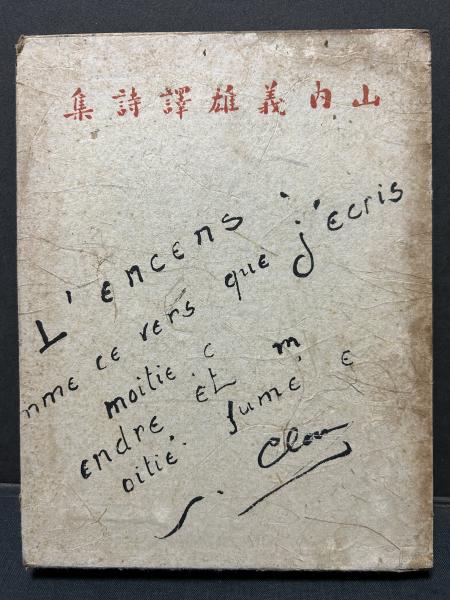 山内義雄譯詩集
L'encens
mme ce vers que j'ecris
moitié c
endre et m
oitié fumé e